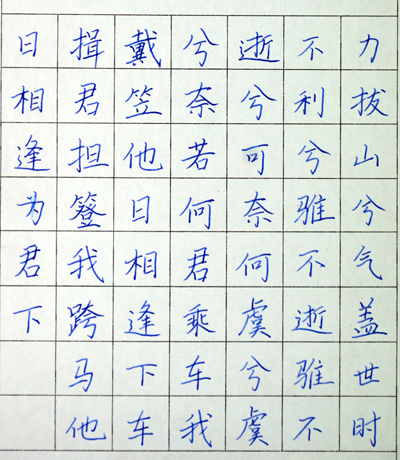 力拔山兮气盖世时
不利兮骓不逝骓不
逝兮可奈何虞兮虞
兮奈若何君乘车我
戴笠他日相逢下车
揖君担簦我跨马他
日相逢为君下